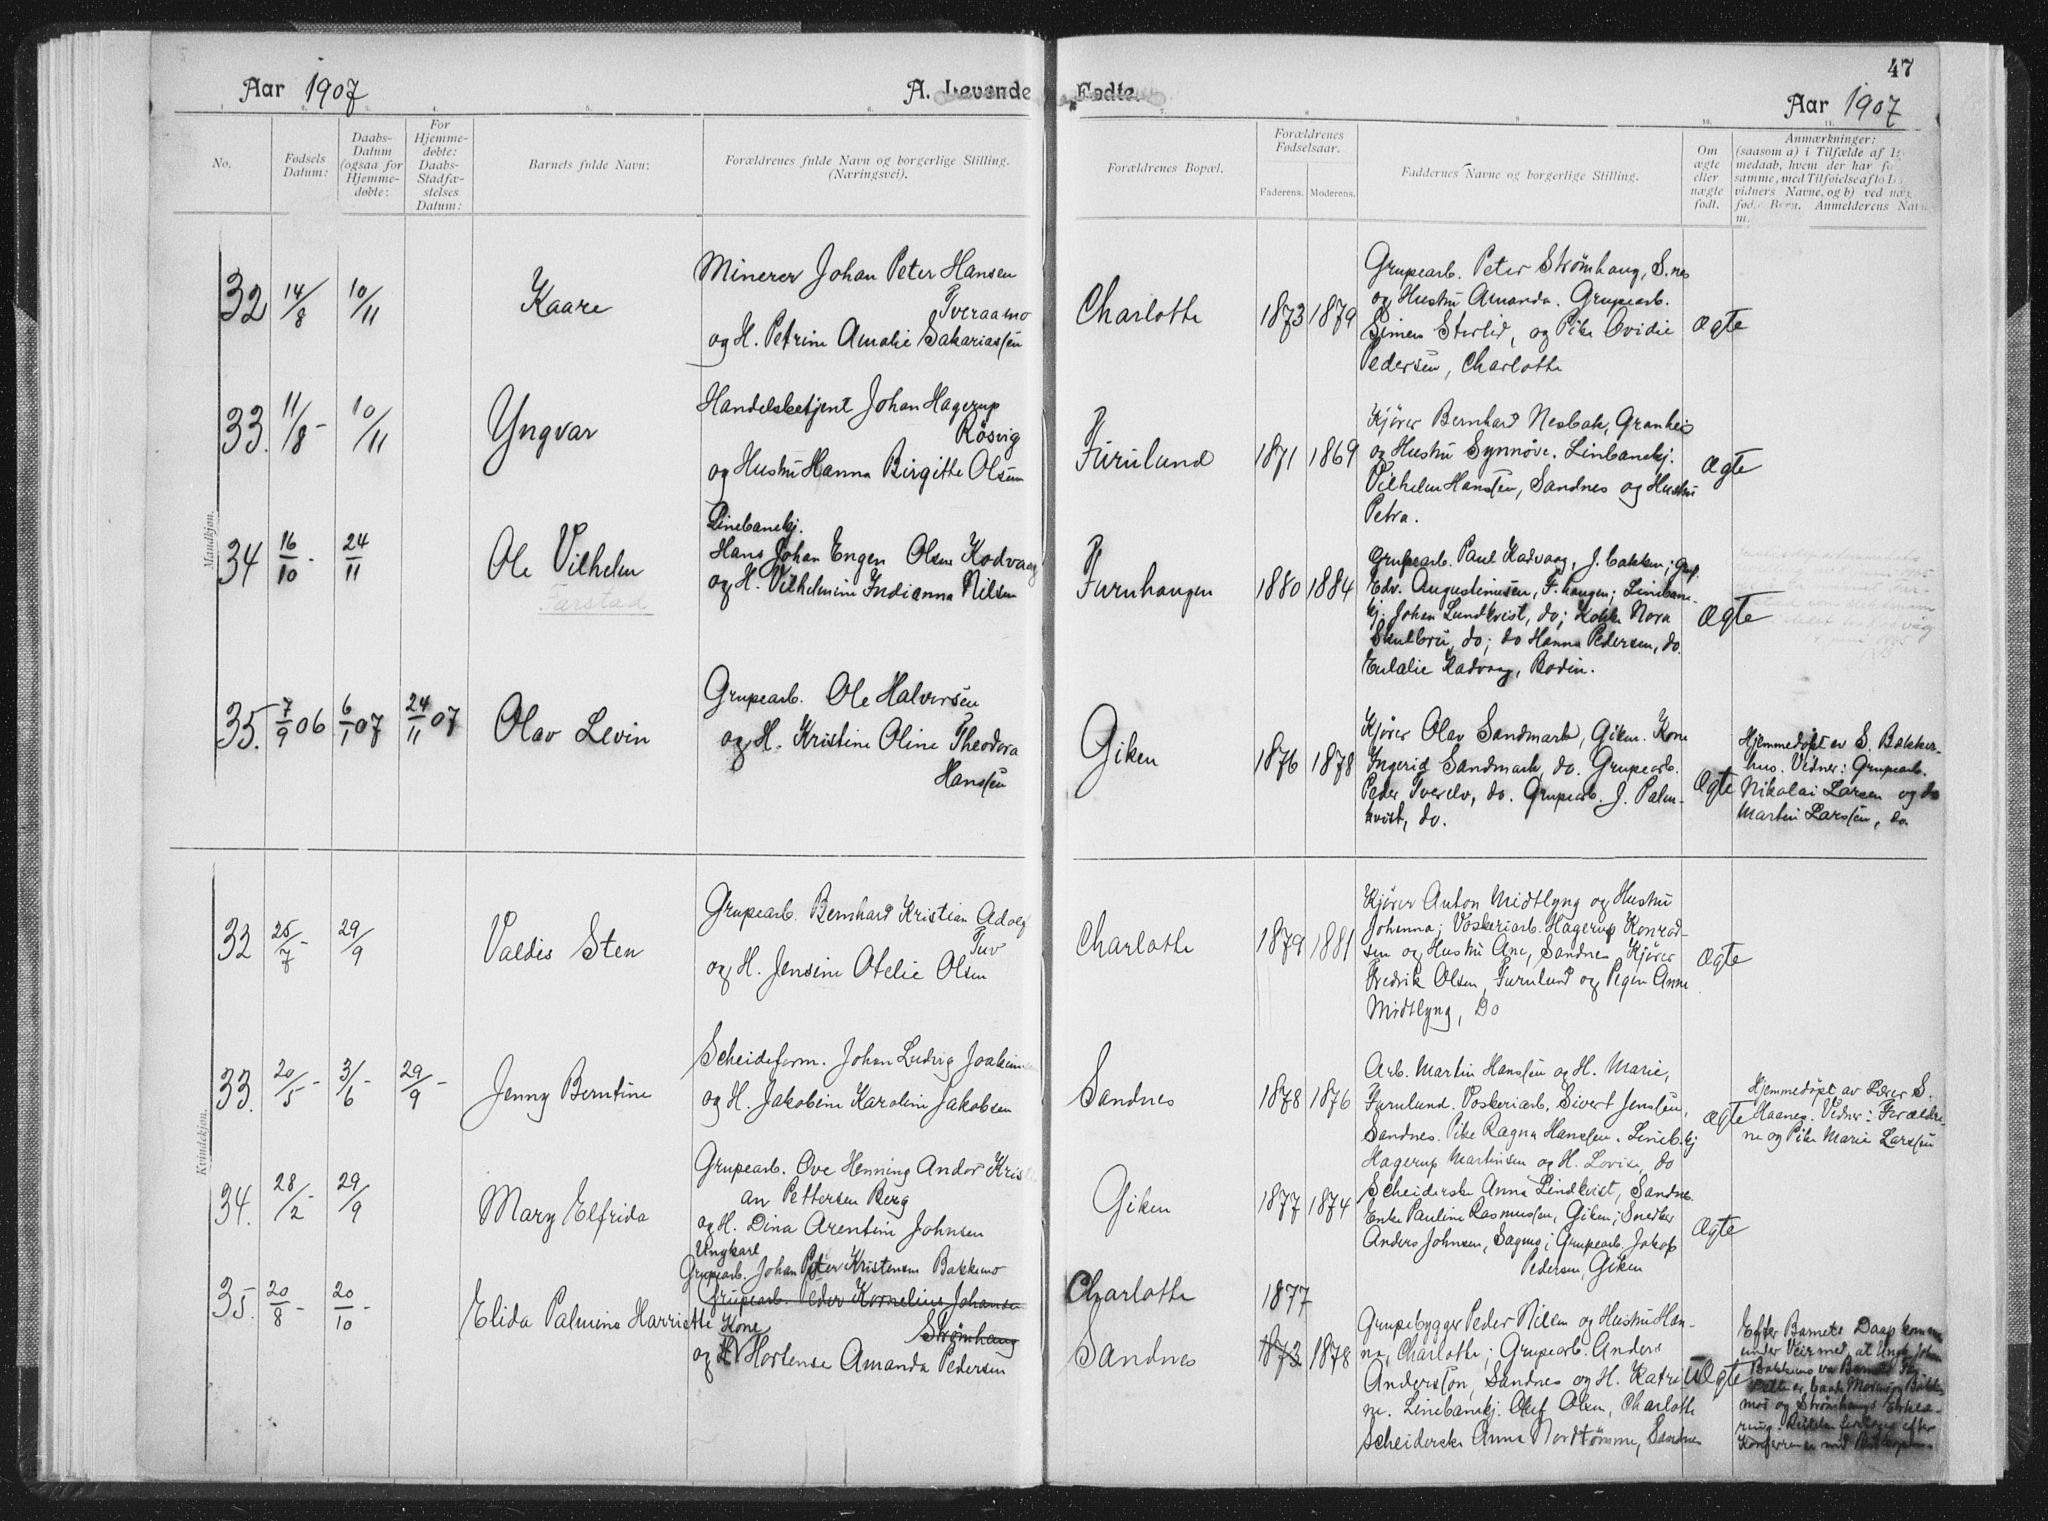 47
Aar 1907
A. Levende Fødte.
Aar 1907
No.
Fødsels Datum:
Daabs-
Datum
(ogsaa for
Hjemme-
døbte:
For
Hjemme-
døbte:
Daabs-
Stadfæ-
stelses
Datum:
Barnets fulde Navn:
Forældrenes fulde Navn og borgerlige Stilling.
(Næringsvei).
Forældrenes Bopæl.
Forældrenes
Fødselsaar.
Faderens. Moderens.
Faddernes Navne og borgerlige Stilling.
Om
ægte
eller
nægte
født.
Anmærkninger:
(saasom a) i Tilfælde af
medaab, hvem der har
samme, med Tilføielse af to
vidners Navne, og b) ved
Anmelderens Navn
Mandkjøn.
32 14/8 10/11 Kaare
Minerer Johan Peter Hansen
Tveraamo
og H. Petrine Amalie Sakariassen
Charlotte 1873 1879
Grupearb. Peter Strømhaug, S.nes
og Hustru Amanda. Grupearb.
Simen Sterlid, og Pike Ovidie
Pedersen, Charlotte
Ægte
33. 11/8 - 10/11 Yngvar
Handelsbetjent Johan Hagerup
Røsvig
og Hustru Hanna Birgitte Olsen
Furulund 1871 1869
Kjører Bernhard Nesbak, Granheis
og Hustru Synnøve. Linbanekj.
Vilhelm Hanssen, Sandnes og Hustru
Petra.
Ægte
34 16/10 - 24/11 Ole Vilhelm
Farstad
Linebanekj.
Hans Johan Engen Olsen Kodvaag
og H. Vilhelmine Indianna Nilsen
Furuhaugen 1880 1884
Grupearb. Paul Kadvaag, J. bakken; Grup.
Edv. Augustinusen, F. haugen; Linibane-
kj. Johan Lundkvist, do; Kokke Nora
Skulbru, do; do Hanna Pedersen, do.
Eulalie Kadvaag, Bodin.
Ægte
35. 7/9 06 6/1 07 24/11 07 Olav Levin
Grupearb. Ole Halversen
og H. Kristine Oline Theodora
Hanssen
Giken 1876 1878
Kjører Olav Sandmark, Giken. Kone
Ingerid Sandmark, do. Grupearb.
Peder Tverelv, do. Grupearb. J. Palm-
kvist, do.
Ægte
Hjemmedøpt av S. Bakker-
hus. Vidner: Grupearb.
Nikolai Larsen og do
Martin Larssen, do.
Kvindekjøn.
32 25/7 - 29/9 Valdis Sten
Grupearb. Bernhard Kristian Adolf
Tuv
og H. Jensine Otelie Olsen
Charlotte 1879 1881
Kjører Anton Midtlyng og Hustru
Johanna; Vaskeriarb. Hagerup Konrad-
sen og Hustru Ane, Sandnes Kjører
Fredrik Olsen, Furulund og Pigen Anne
Midtlyng, Do
Ægte
33. 20/5 - 3/6 - 29/9 - Jenny Berntine
Scheideform. Johan Ludvig
og H. Jakobine Karoline Jakobsen
Sandnes 1878 1876
Arb. Martin Hanssen og H. Marie,
Furulund. Vaskeriarb. Sivert Jenssen,
Sandnes. Pike Ragna Hanssen. Lineb.kj
Hagerup Martinsen og H. Lovise, do
Ægte
Hjemmedøpt av Lærer S.
Haanes. Vidner: Forældre-
ne og Pike Marie Larssen
34. 28/2 - 29/9 Mary Elfrida
Grupearb. Ove Henning Andor Kristi
an Pettersen Berg
og H. Dina Arentine Johnsen
Giken 1877 1874
Scheiderske Anna Lindkvist, Sandnes.
Enke Pauline Rasmussen, Giken; Snedker
Anders Johnsen, Sagmo; Grupearb. Jakop
Pedersen, Giken
Ægte
35. 20/8 - 20/10 - Elida Palmine Harriette
Ungkarl
Grupearb. Johan Peter Kristensen Bakkemo
Grupearb. Peder Kornelius Johansen
Strømhaug
Kone
og H. Hortense Amanda Pedersen
Charlotte 1877
Sandnes 1873 1878
Grupebygger Peder Nilsen og Hustru Han-
na, Charlotte; Grupearb. Anders
Andersson, Sandnes og H. Katri-
ne. Linebanekj. Olef Olsen, Charlotte
Scheiderske Anna Nordtømme, Sandnes
U Ægte
Efter Barnets Daap kom
under Veir med, at Ungk. Johan
Bakkemo va Barnets
mos og Strømhaugs Erklæ-
ring.